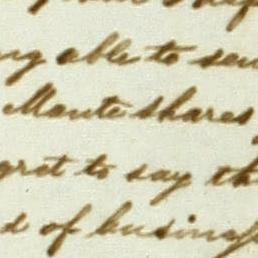 ng able to sen
Monte shares
gret to say th
d of busines